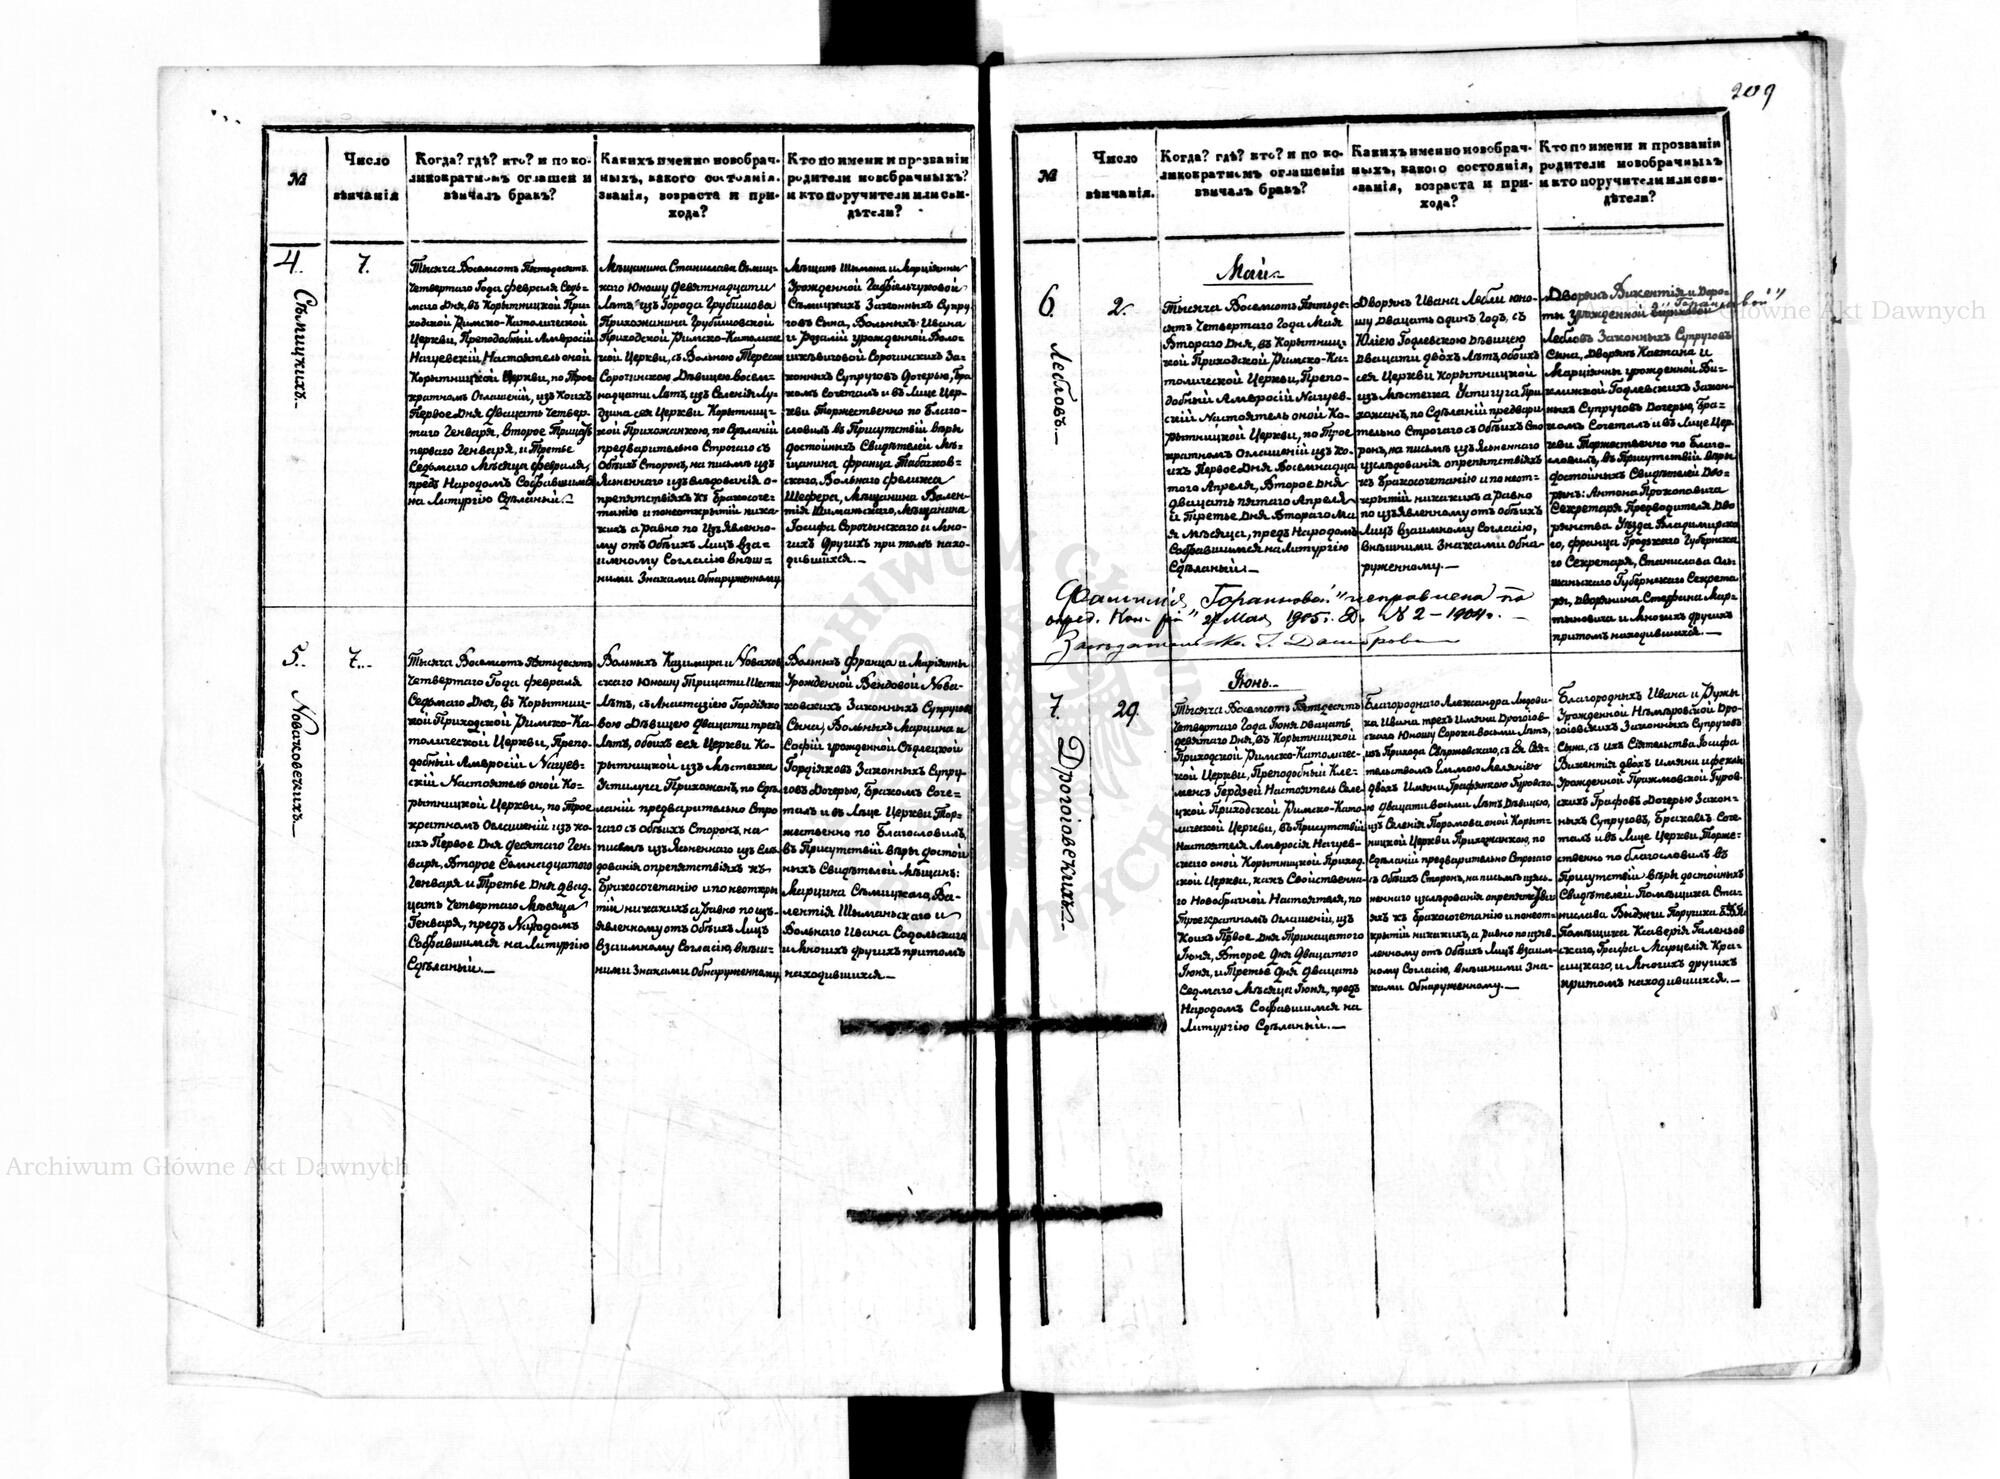 209
№
Число вѣнчанія
Когда? гдѣ? кто? и по ко-
ликократномъ оглашеніи
вѣнчалъ бракъ?
Какихъ именно новобрач-
ныхъ, какого состоянія,
званія, возраста и при-
хода?
Кто по имени и прозваніи
родители новобрачныхъ?
и кто поручители или сви-
дѣтели?
4.
Сѣмицкихъ.
7.
Тысяча Восемсотъ Пятьдесятъ
Четвертаго Года февраля Седь-
маго Дня, въ Корытницкой При-
ходской Римско-Католической
Церкви, Преподобный Амвросій
Нагуевскій, Настоятель оной
Корытницкой Церкви, по Трое-
кратномъ Оглашеніи, изъ Коихъ
Первое Дня Двацать Четвер-
таго Генваря, Второе Трицать
перваго Генваря, и Третье
Седьмаго Мѣсяца февраля,
предъ Народомъ Собравшимся
на Литургію Сдѣланый.
Мѣщанина Станислава Сѣмиц-
каго Юношу Девятнадцати
Лѣтъ, изъ Города Грубишова
Прихожанина Грубишовской
Приходской Римско-Католиче-
кой Церкви, съ Вольною Терезою
Сорочинскою Дѣвицею восем-
надцати Лѣтъ, изъ Селенія Лу-
дзина сея Церкви Корытниц-
кой Прихожанкою, по Сдѣланій
предварительно Строгаго съ
Обѣихъ Сторонъ, на письмѣ изъ
Ясненнаго изслѣдованія о-
препятствіяхъ къ бракосоче-
танію и понеоткрытій ника-
кихъ а равно по Изъявленно-
му отъ Обѣихъ Лицъ Вза-
имному Согласію Внѣш-
ними Знаками Обнаруженному
Мѣщанъ Шымона и Марціянны
Урожденной Гафіяльчуковой
Сѣмицкихъ Законныхъ Супру-
говъ Сына, Вольныхъ Ивана
и Розалій урожденной Воло-
шкѣвиговой Сорочинскихъ За-
конныхъ Супруговъ Дочерью, Бра-
комъ Сочеталъ и въ Лице Цер-
кви Торжественно по Благо-
словилъ въ Присутствій вѣры
достойныхъ Свидѣтелей Мѣ-
щанина франца Табачков-
скаго, Вольнаго феликса
Шефера, Мѣщанина Вален-
тія Шиманьскаго, Мѣщанина
Іосифа Сорочынскаго и Мно-
гихъ Другихъ при томъ нахо-
дившихся.
5.
Новаковскихъ.
7.
Тысяча Восемсотъ Пятьдесятъ
Четвертаго Года февраля
Седьмаго Дня, въ Корытниц-
кой Приходской Римско-Ка-
толической Церкви, Препо-
добный Амвросій Нагуев-
скій Настоятель оной Ко-
рытницкой Церкви, по Трое
кратномъ Оглашеній изъ ко-
ихъ Первое Дня Десятаго Ген-
варя, Второе Семнадцатого
Генваря и Третье Дня Двад-
цать Четвертаго Мѣсяца
Генваря, предъ Народомъ
Собравшимся на Литургію
Сдѣланый.
Вольныхъ Казимира и Новаков
скаго Юношу Трицати Шести
Лѣтъ, съ Анастазіею Гордіяко
вою Дѣвицею двацати трехъ
Лѣтъ, обоихъ сея Церкви Ко-
рытницкой изъ Мѣстечка
Устилуга Прихожанъ, по Сдѣ
ланій предварительно Стро
гаго съ обѣихъ Сторонъ, на
письмѣ изъ Ясненнаго изъ Слѣ-
дованія опрепятствіяхъ къ
Бракосочетанію и понеоткры
тій никакихъ а равно по изъ-
явленному отъ Обѣихъ Лицъ
Взаимному Согласію, Внѣш-
ними Знаками Обнаруженному
Вольныхъ франца и Маріянны
Урожденной Вендовой Нова-
ковскихъ Законныхъ Супруговъ
Сына, Вольныхъ Марцина и
Софій урожденной Сѣдлецкой
Гордіяковъ Законныхъ Супру-
говъ Дочерью, Бракомъ Соче-
талъ и въ Лице Церкви Тор-
жественно по Благословилъ
въ Присутствій Вѣры достой
ныхъ Свидѣтелей Мѣщанъ:
Марцина Сѣмицкаго, Ва-
лентія Шыманьскаго и
Вольнаго Ивана Содольскаго
и Многихъ другихъ притомъ
находившихся.
№
Число вѣнчанія.
Когда? гдѣ? кто? и по ко-
ликократномъ оглашеніи
вѣнчалъ бракъ?
Какихъ именно новобрач-
ныхъ, какого состоянія,
званія, возраста и при-
хода?
Кто по имени и прозваніи
родители новобрачныхъ
и кто поручители или сви-
дѣтели?
Май
6.
Леблов.
2.
Тысяча Восемсотъ Пятьде-
сятъ Четвертаго Года Мая
Втораго Дня, въ Корытниц-
кой Приходской Римско-Ка-
толической Церкви, Препо-
добный Амвросій Нагуев-
скій Настоятель оной Ко-
рытницкой Церкви, по Трое
кратномъ Оглашеній изъ Ко-
ихъ Первое Дня Восемнадца
того Апреля, Второе Дня
Двацать пятаго Апреля
и Третье Дня Втораго Ма
я Мѣсяца, предъ Народомъ
Собравшимся на Литургію
Сдѣланый.
Дворянъ Ивана Лебли юно-
шу двацать одинъ Годъ, съ
Юліею Годлевскою Дѣвицею
Двацати двохъ Лѣтъ, обоихъ
сея Церкви Корытницкой
изъ Мѣстечка Устилуга При
хожанъ, по Сдѣланій предвари
тельно Строгаго съ Обѣихъ Сто
ронъ, на письмѣ изъ Ясненнаго
изслѣдования опрепятствіяхъ
къ Бракосочетанію и понеот-
крытій никакихъ а равно
по изъявленному отъ обѣихъ
Лицъ Взаимному Согласію,
Внѣшними Знаками Обна-
руженному.
Дворянъ Викентія и Доро-
ты урожденной "Горапиовой"
Лебловъ Законныхъ Супруговъ
Сына, Дворянъ Каетана и
Марціянны урожденной Ви-
Годлевскихъ Закон-
ныхъ Супруговъ Дочерью, Бра-
комъ Сочеталъ и въ Лице Цер-
кви Торжественно по Благо-
словилъ, въ Присутствій вѣры
достойныхъ Свидѣтелей Дво-
рянъ: Антона Прокоповича
Секретаря Предводителя Дво
рянства Уѣзда Владимірска
го, франца Гродзкаго Губернска
го Секретаря, Станислава Оль-
шаньскаго Губернскаго Секрета
ря, Дворянина Стефана Мар-
тыновича и Многихъ другихъ
притомъ находившихся.
Фамилія "Горапиовой" исправлена по
опред. Кон. 2 Мая 1905 г. Д. № 2 – 1904 г.
Іюнь.
7.
Дрогоіовскихъ.
29.
Тысяча Восемсотъ Пятьдесятъ
Четвертаго Года Іюня Двацать
девятаго Дня, въ Корытницкой
Приходской Римско-Католичес-
кой Церкви, Преподобный Кле-
менсъ Гердзей Настоятель Селе-
цкой Приходской Римско-Като-
лической Церкви, въ Присутствій
Настоятеля Амвросія Нагуев-
скаго оной Корытницкой Приход-
ской Церкви, какъ Свойственна-
го Новобрачной Настоятеля, по
Троекратномъ Оглашеній, изъ
Коихъ Первое Дня Тринацатого
Іюня, Второе Дня Двацатого
Іюня, и Третье Дня Двацать
Седмаго Мѣсяца Іюня, предъ
Народомъ Собравшимся на
Литургію Сдѣланый.
Благороднаго Александра Людови-
ка Ивана трехъ Имянъ Дрогоіов-
скаго Юношу Сорока восьми Лѣтъ,
изъ Прихода Свѣржовскаго, съ Ея Сія-
тельствомъ Еммою Меляніею
двохъ Имянъ Графянкою Гуровско-
ю двацати восьми Лѣтъ Дѣвицею,
изъ Селенія Поромова оной Корыт-
ницкой Церкви Прихожанкою, по
Сдѣланій предварительно Строгаго
съ Обѣихъ Сторонъ, на письмѣ изъяс-
неннаго изслѣдования опрепятстви
яхъ къ бракосочетанію и понеот-
крытій никакихъ, а равно по изъяв-
ленному отъ Обѣихъ Лицъ Взаим-
ному Согласію, Внѣшними Зна-
ками Обнаруженному.
Благородныхъ Ивана и Ружы
Урожденной Нѣмировской Дро-
гоіовскихъ Законныхъ Супруговъ
Сына, съ ихъ Сіятельства Іосифа
Викентія двохъ имянъ и феклы
Урожденной Пражмовской Гуров-
скихъ Графовъ Дочерью Закон-
ныхъ Супруговъ, Бракомъ Соче-
талъ и въ Лице Церкви Торже-
ственно по благословилъ въ
Присутствій вѣры достойныхъ
Свидѣтелей Помѣщика Ста-
нислава Выджги Поручика
Помѣщика Ксаверія Галензов-
скаго, Графа Марцелія Кра-
сицкаго, и Многихъ другихъ
притомъ находившихся.
Archiwum Główne Akt Dawnych
Archiwum Główne Akt Dawnych